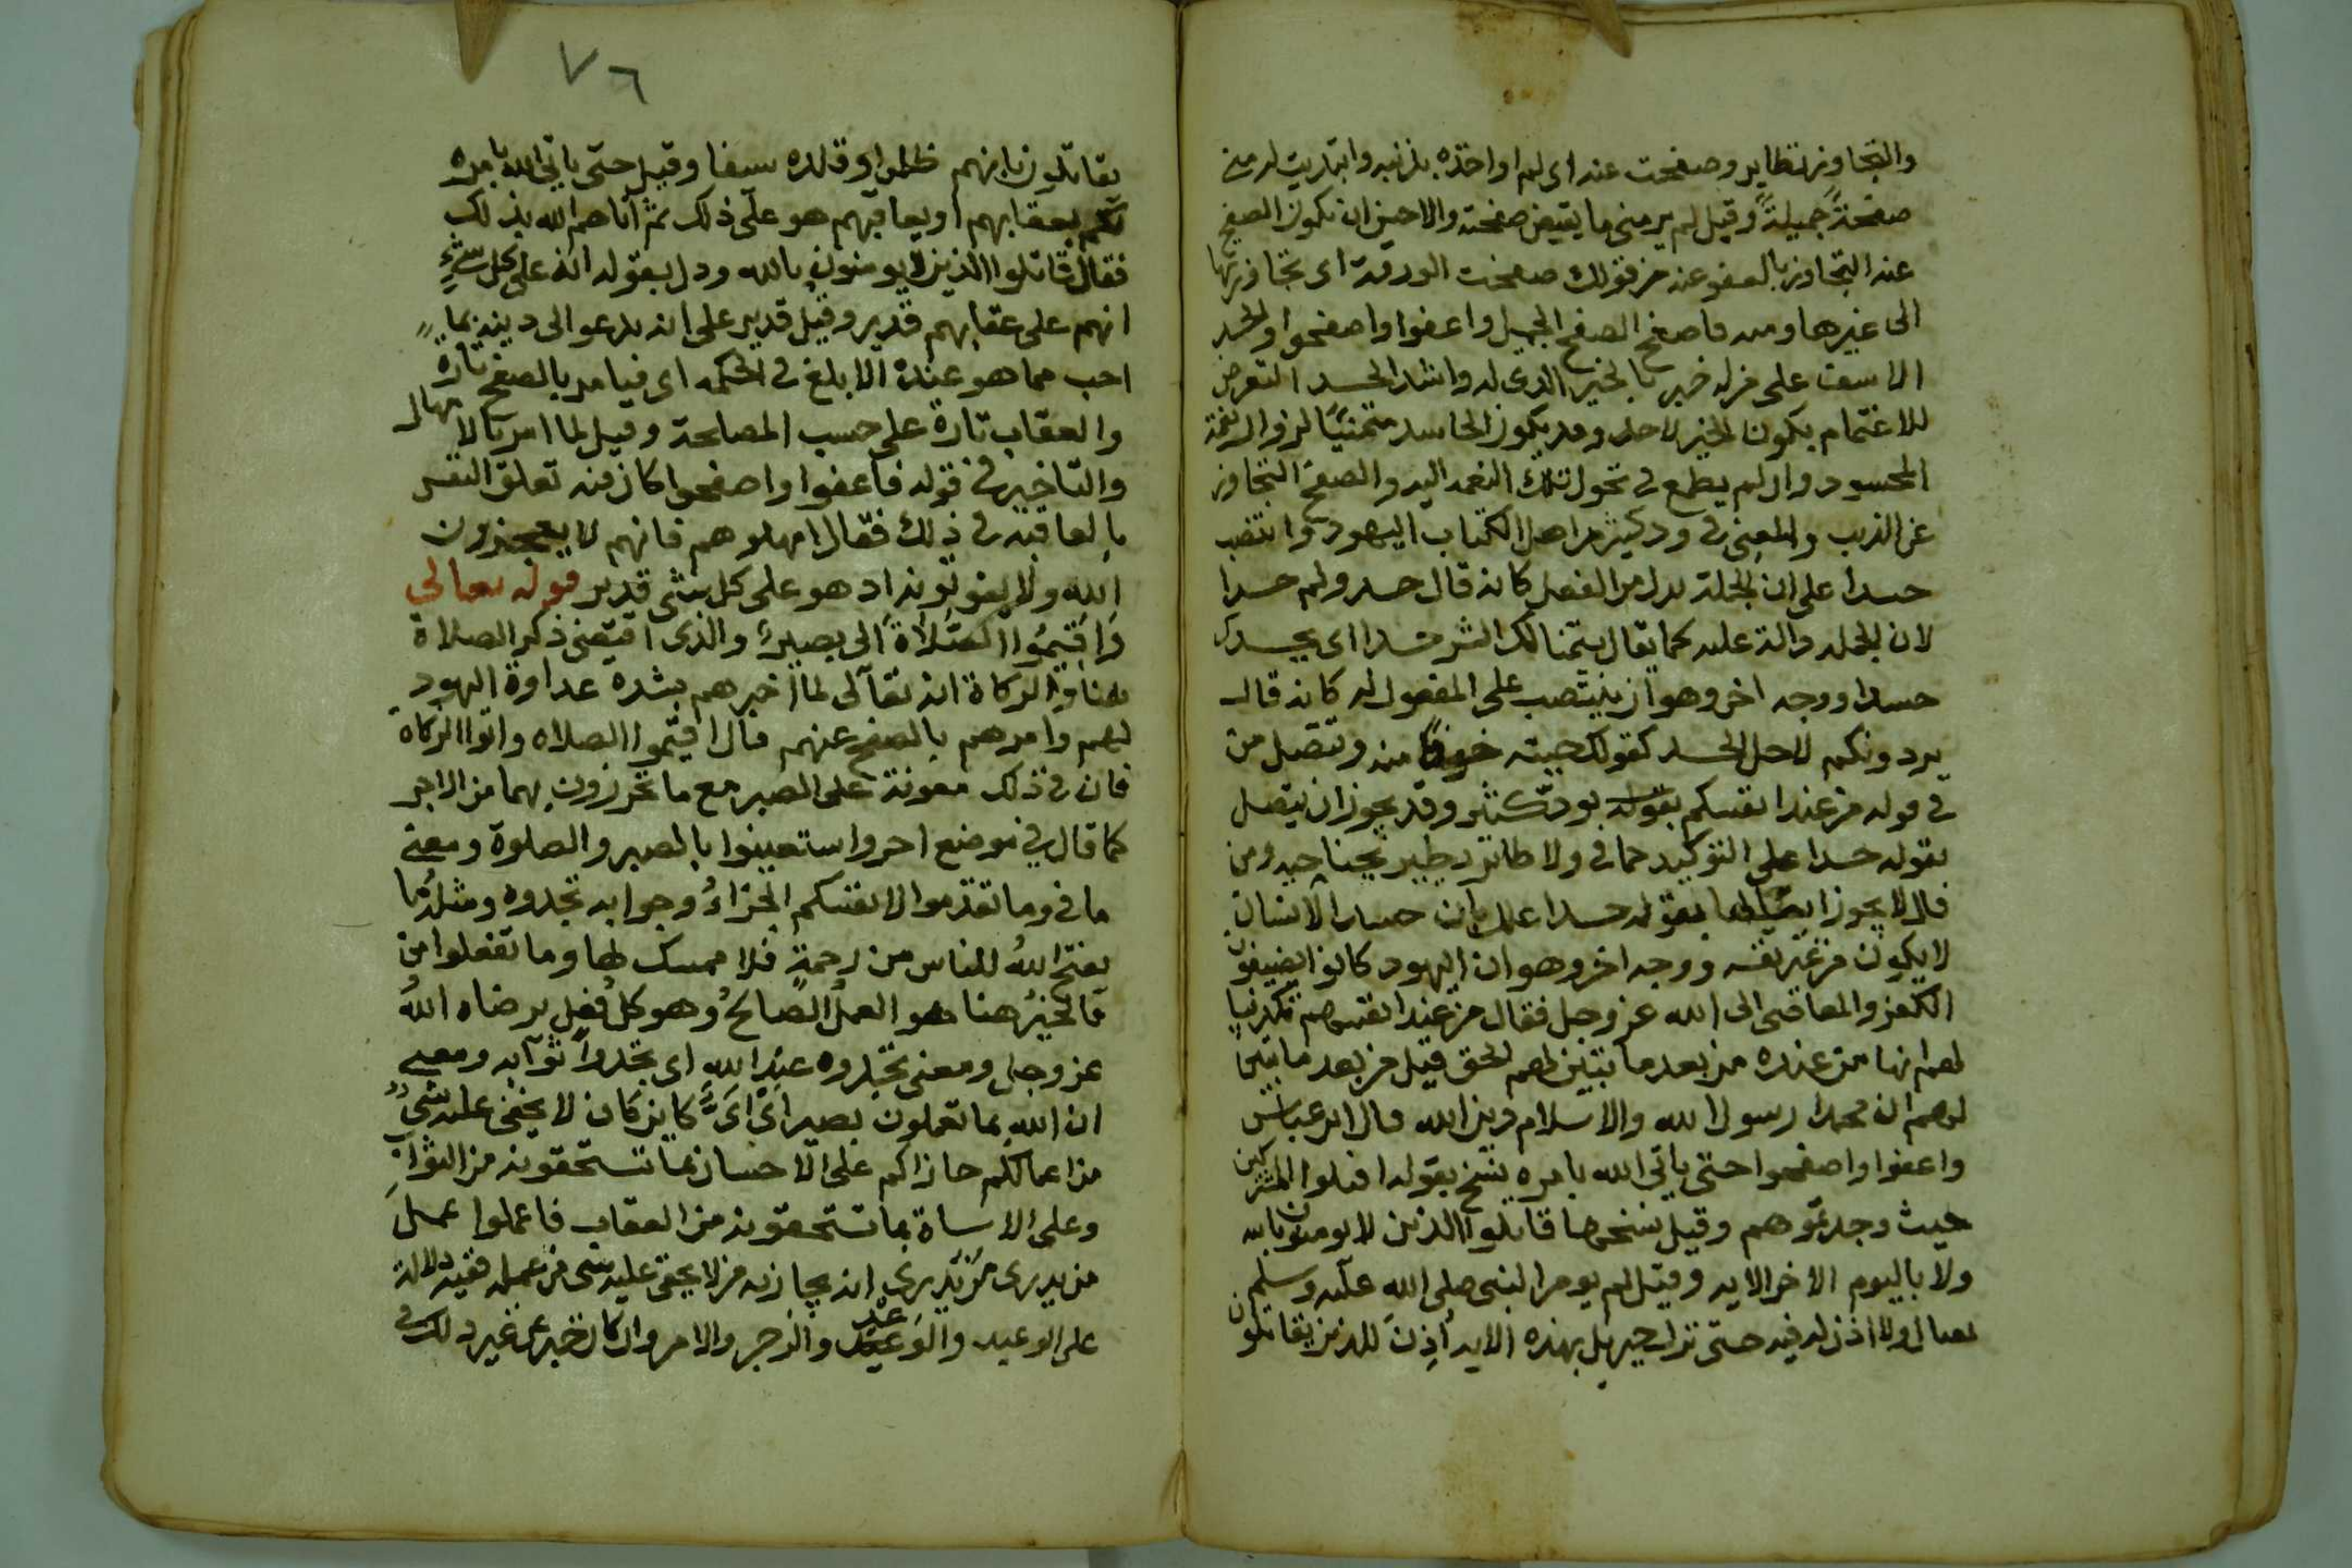 والتجاوز نظاير وصفحت عنه اى لم اواخذه بذنبه وابديت له منى
صفحةً جميلةً وقيل لم ير منى ما يقبض صفحته والاحسن ان يكون الصفح
عنه التجاوز بالعفو عنه من قولك صفحت الورقة اى تجاوزتها
الى غيرها ومنه فاصفح الصفح الجميل واعفوا واصفحوا والحسد
الاسف على من له خير بالخير الذى له واشد الحسد التعرض
للاغتمام بكون الخير لاحد وقد يكون الحاسد متمنيًا لزوال نعمة
المحسود وان لم يطمع فى تحول تلك النعمه اليه والصفح التجاوز
عن الذنب والمعنى فى ود كثير من اهل الكتاب اليهود وانتصب
حسدا على ان الجملة بدل من الفعل كانه قال حسدوكم حسدا
لان الجمله دالة عليه كما يقال يتمنا لك الشر حسدا اى يحسدك
حسدا ووجه اخر وهو ان ينتصب على المفعول له كانه قال
يردونكم لاجل الحسد كقولك جيته خوفًا منه وتتصل من
فى قوله من عند انفسكم بقوله بود كثير وقد يجوز ان يتصل
بقوله حسدا على التوكيد كما فى ولا طائر يطير بجناحيه ومن
قال لا يجوز بقوله حسدا علل بان حسد الانسان
لا يكون من غير نفسه ووجه اخر وهو ان اليهود كانوا يضيفون
الكفر والمعاصى الى الله عز وجل فقال من عند انفسهم تكذيبا
لهم انها من عنده من بعد ما تبين لهم الحق قيل من بعد ما تبين
لهم ان محمدا رسول الله والاسلام دين الله قال ابن عباس
واعفوا واصفحوا حتى ياتى الله بامره نسخ بقوله اقتلوا المشركين
حيث وجدتموهم وقيل نسخها قاتلوا الذين لا يومنون بالله
ولا باليوم الاخر الايه وقيل لم يومر النبى صلى الله عليه وسلم
بقتال ولا اذن له فيه حتى نزل جبريل بهذه الايه أُذِنَ للذين يقاتلون
٧٦
يقاتلون بانهم ظلموا وقلده سيفا وقيل حتى ياتى الله بامره
بعقابهم او يعاقبهم هو على ذلك ثم اتاهم الله بذلك
فقال قاتلوا الذين لا يومنون بالله ودل بقوله انه على كل شىء
انهم على عقابهم قدير وقيل قدير على ان يدعو الى دينه بما
احب مما هو عنده الابلغ فى الحكمه اى فيامر بالصفح تارة
والعقاب تارة على حسب المصلحة وقيل لما امر بالامهال
والتاخير فى قوله فاعفوا واصفحوا كان فيه تعلق النفس
بالعاقبه فى ذلك فقال امهلوهم فانهم لا يعجزون
الله ولا يفوتونه اذ هو على كل شى قدير قوله تعالى
وَاَقِيمُوا الصَّلَاةَ الى بصير والذى اقتضى ذكر الصلاة
هنا والزكاة انه تعالى لما اخبرهم بشدة عداوة اليهود
لهم وامرهم بالصفح عنهم قال اقيموا الصلاه واتوا الزكاة
فان فى ذلك معونة على الصبر مع ما تحرزون بهما من الاجر
كما قال فى موضع اخر واستعينوا بالصبر والصلوة ومعنى
ما فى وما تقدموا لانفسكم الجزاءُ وجوابه تجدوه ومثله ما
يفتح اللهُ للناس من رحمةٍ فلا ممسك لها وما تفعلوا من
فالخيرُ هنا هو العملُ الصالحُ وهو كلُ فعلٍ يرضاه اللهُ
عز وجل ومعنى تجدوه عند الله اى تجدوا ثوابه ومعنى
ان الله بما تعملون بصير اى اىَّ كاين كان لا يخفى عليه شىٌ
من اعمالكم جازاكم على الاحسان بما تستحقونه من الثوابِ
وعلى الاساة بما تستحقونه من العقاب فاعملوا عملَ
من يدرى من يدرى انه يجازيه من لا يخفى عليه شى من عمله ففيه دلالة
على الوعيد والوَعْد والزجر والامر وان كان خبر عن غير ذلك فى